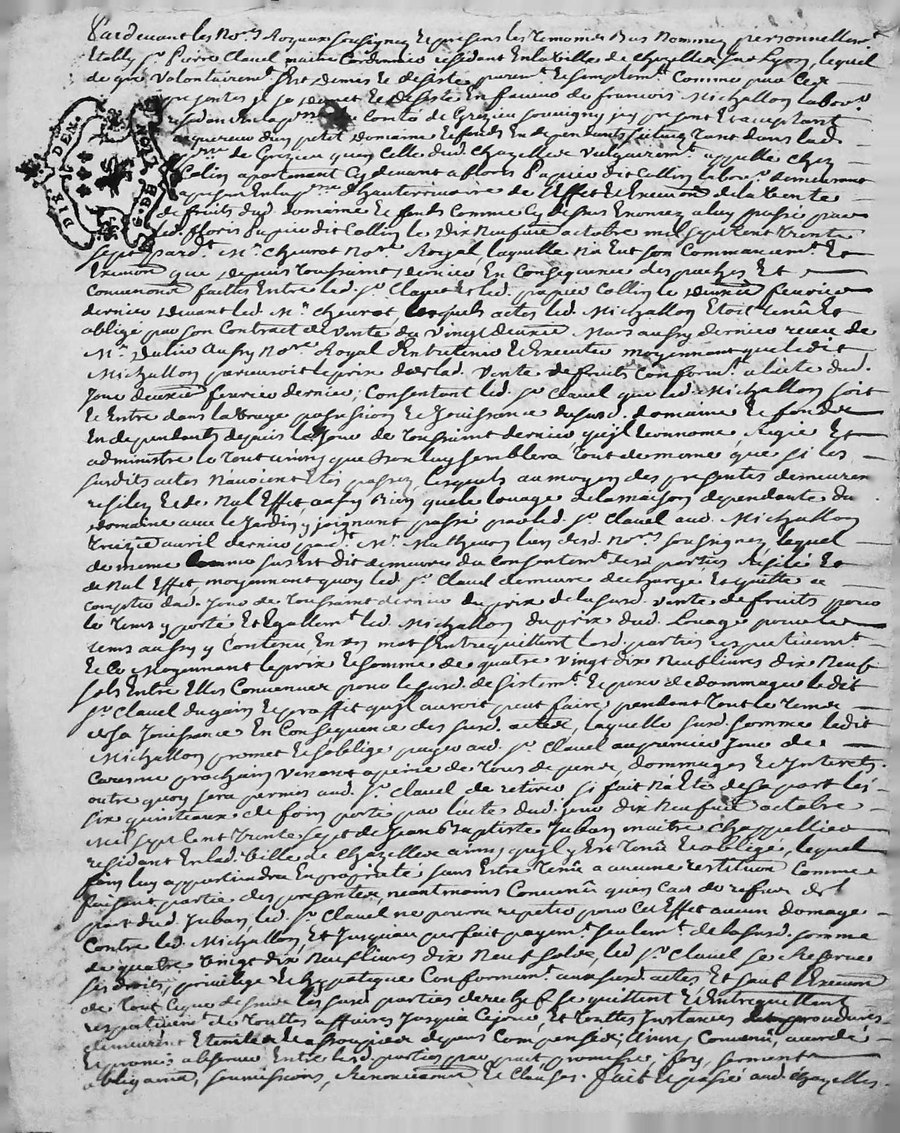 Pardevant les No.res Royaux soussignez Et presens les temoins Bas Nommez personnellem.t
Etably s.r Pierre Clavel maitre Cordonnier residant En la ville de Chazelles sur Lyon, lequel
de gré volontairem.t s'Est demis Et desisté purem.t Et simplem.t Comme par Ces
presentes il se demet Et desiste En faveur de francois Michallon labou.r
residant En la p.sse comté de Grezieu Souvigny present Et acceptant
acquereur d'un petit domaine Et fonds En dependants scitué tant dans lad.
p.sse de Grezieu qu'en Celle dud. Chazelles vulgairem.t appellé chez
Collin apartenant Cy devant a floris Papier dit Collin labou.r demeurant
a present En la p.sse d'hauterivoire de l'Effet Et Execu.on de la vente
de fruits dud. domaine Et fonds Comme Cy dessus Enoncez a luy passé par
led. floris Papier dit Collin le dix Neufvie octobre mil sept Cent trente
sept pard.t M.e Chevrot No.re Royal laquelle N'a Eut son Commancem.t Et
Execu.on que depuis toussaints dernier En Consequence des pactes Et
Convenances faittes Entre led. s.r Clavel Et led. papier Collin le deuxie fevrier
dernier devant led. M.e Chevrot lesquels actes led. Michallon Etoit tenû Et
obligé par son Contract de vente du vingt deuxie Mars aussy dernier receu de
M.e Julien aussy No.re Royal d'Entretenir Et Executer moyennant que ledit
Michallon percevroit le prix de lad. vente de fruits Conform.t a l'acte dud.
Jour deuxie fevrier dernier; Consentant led. s.r Clavel que led. Michallon soit
Et Entre dans la vraye possession Et Jouissance dususd. domaine Et fonds
En dependants depuis le Jour de toussaint dernier qu'il Econnome, Regie Et
administre le tout ainsy que bon luy semblera tout de meme que si les
susdits actes N'avoient Etés passez, lesquels au moyen des presentes demeurent
resiliez Et de Nul Effet, aussy Bien que le louage de la maison dependante du
domaine avec le Jardin y joignant passé par led. s.r Clavel aud. Michallon
treizie avril dernier pard.t M.e Mathevon l'un desd. No.res soussignez, lequel
de meme Comme sus Est dit demeure du Consentem.t desd. parties Resilié Et
de Nul Effet, moyennant quoy led. s.r Clavel demeure dechargé Et quitte a
compter dud. Jour de toussaint dernier du prix de la susd. vente de fruits pour
le tems y porté Et Egallem.t led. Michallon du prix dud. louage pour le
tems aussy y Contenu En un mot s'Entrequittent lesd. parties respectivem.t
Et Ce Moyennant le prix Et somme de quatre vingt dix Neuf livres dix Neuf
sols Entre Elles Convenuë pour le susd. desistem.t Et pour dedommager ledit
s.r Clavel du gain Et proffit qu'il auroit peut faire pendant tout le tems
de sa Jouissance En Consequence des susd. actes, laquelle susd. somme ledit
Michallon promet Et s'oblige payer aud. s.r Clavel au premier Jour de
Caresme prochain venant a peine de tous depens, dommages Et Interets.
outre quoy sera permis aud. s.r Clavel de retirer si fait N'a Eté de sa part les
six quintaux de foin porté par l'acte dud. jour dix Neufvie octobre
mil sept Cent trente sept de Jean Baptiste Juban maitre Chappellier
residant En lad. ville de Chazelles ainsy qu'il y Est tenû Et obligé, lequel
foin luy appartiendra En proprieté sans Entre tenû a aucune restitu.on Comme
faisant partie des presentes, neantmoins Convenû qu'en Cas de refus de la
part dud. Juban, led. s.r Clavel ne pourra repeter pour Cet Effet aucun domage
Contre led. Michallon, Et Jusqu'au parfait payem.t seulem.t de la susd. somme
de quatre vingt dix Neuf livres dix Neuf sols, led. s.r Clavel se Reserve
ses droits, privilege Et hypoteque Conformem.t aux susd. actes Et sauf l'Execu.on
de tout Ce que dessus les susd. parties derechef se quittent Et Entrequittent
respectivem.t de touttes affaires Jusqu'a Ce jour, Et touttes Instances procedures
demeurent Eteintes Et assoupies depens Compensez; ainsy Convenû, accordé
Et promis observer Entre lesd. parties par pait promesse, foy, serment
obligations, soumissions, Renonciations, Et Clauses. fait Et passé aud. Chazelles
G. DE LION
DEN.